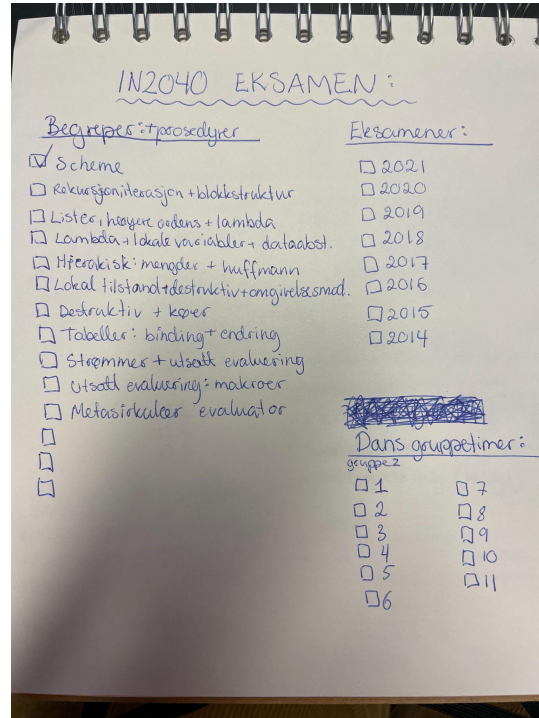 IN2040 EKSAMEN:
Begreper: + prosedyrer
Scheme
Rekursjon, iterasjon + blokkstruktur
Lister, høyere ordens + lambda
Lambda + lokale variabler + dataabst.
Hierakisk: mengder + huffmann
Lokal tilstand + destruktiv + omgivelsesmod.
Destruktiv + køer
Tabeller: binding + endring
Strømmer + utsatt evaluering
Utsatt evaluering: makroer
Metasirkulær evaluator
Eksamener:
2021
2020
2019
2018
2017
2016
2015
2014
Dans gruppetimer:
gruppe 2
1
2
3
4
5
6
7
8
9
10
11